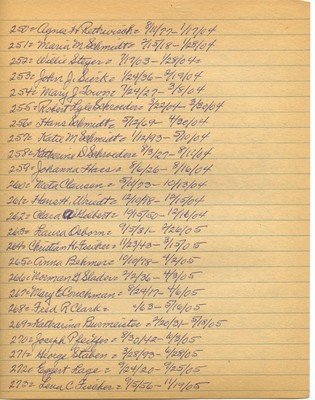 250= Agnes H. Rethwisch= 9/10/77-1/17/04
251= Maria M. Schmidt= 2/15/18-1/25/04
252= Willie Steger= 7/7/03-1/28/04
253= John J. Sierk= 1/24/36-2/19/04
254= Mary J. Town= 7/24/27-3/8/04
255= Robert Lyle Schroeder= 7/22/04-3/30/04
256= Hans Schmidt= 5/2/64-4/30/04
257= Katie M. Schmidt= 1/12/43-5/10/04
258= Katharina D. Schroeder= 8/3/27-6/10/04
259= Johanna Hass= 9/6/26-8/16/04
260= Meta Clausen= 5/10/73-10/13/04
261= Hans H. Arndt= 12/10/98-12/15/04
262= Clara A Gilbert= 10/15/50-12/16/04
263= Laura Osborn= 9/15/81-2/26/05
264= Christian H. Fischer= 11/23/43-3/15/05
265= Anna Behmer= 10/10/98-4/2/05
266= Norman G. Slader= 2/12/36-4/3/05
267= Mary E. Conchman= 8/24/17-4/6/05
268= Fred R. Clark= /63-5/10/05
269= Katharina Burmeister= 2/20/31-5/18/05
270= Joseph Pfeiffer= 8/30/42-6/3/05
271= George Staben= 3/28/43-6/28/05
272= Eggert Lage= 2/24/20-7/25/05
273= Lena C. Fischer= 9/5/56-11/17/05